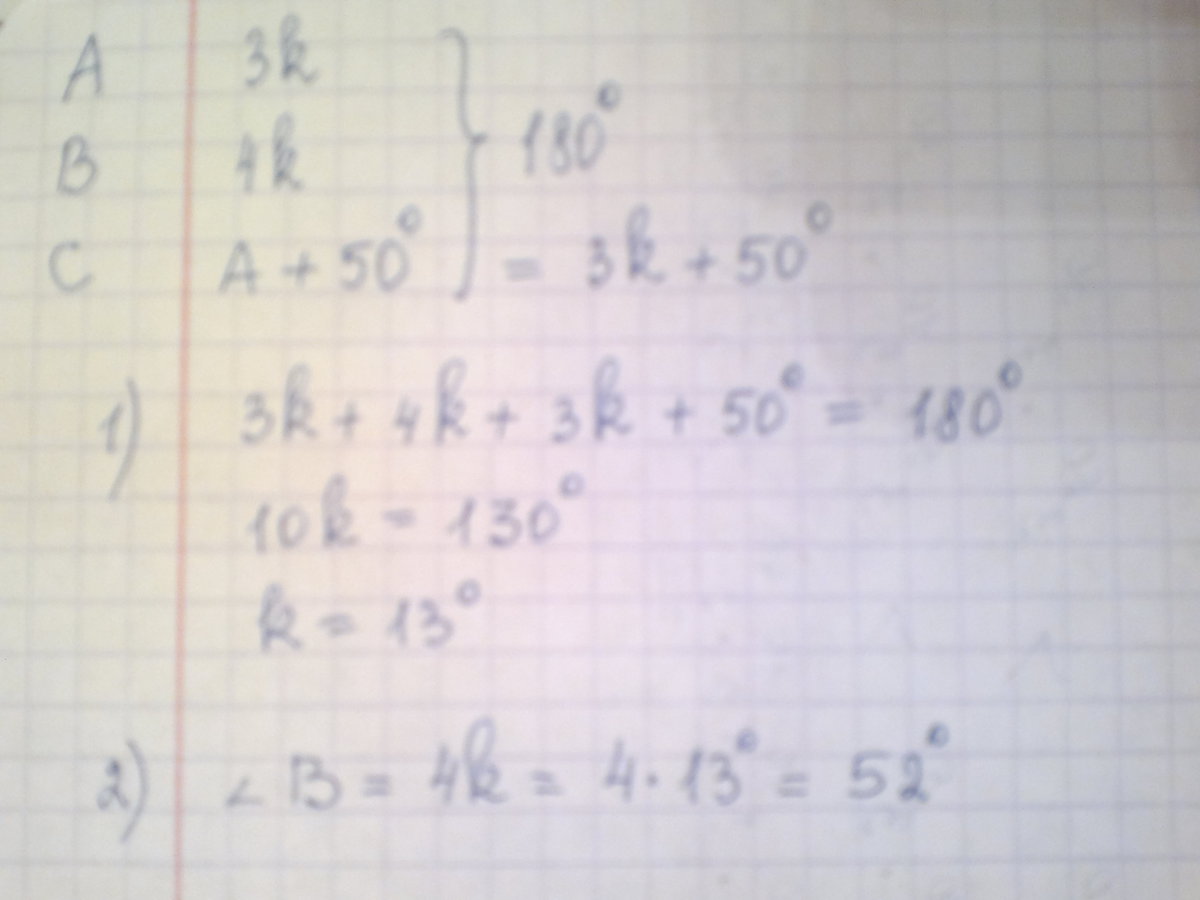 A 3k
B 4k } 180°
C A + 50° = 3k + 50°
1) 3k + 4k + 3k + 50° = 180°
10k = 130°
k = 13°
2) ∠B = 4k = 4 · 13° = 52°